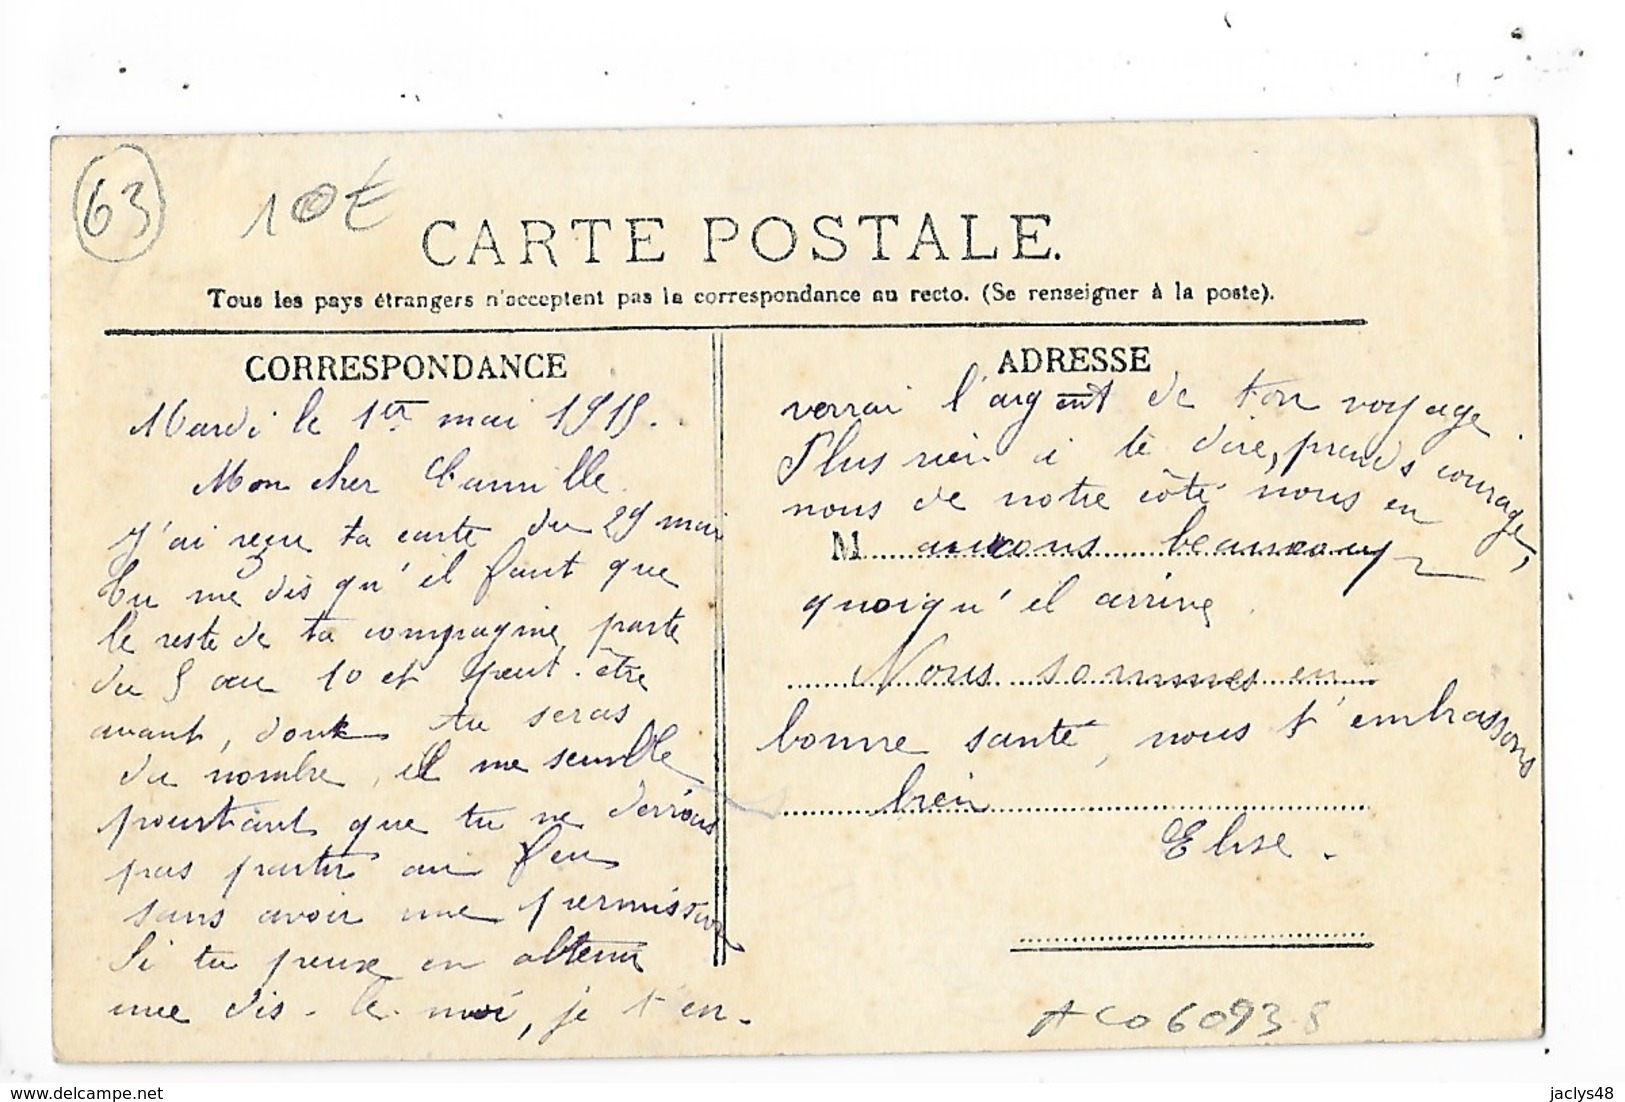 63
10€
CARTE POSTALE.
Tous les pays étrangers n'acceptent pas la correspondance au recto. (Se renseigner à la poste).
CORRESPONDANCE
Mardi le 1er mai 1915.
Mon cher Camille.
J'ai reçu ta carte du 29 mai
Tu me dis qu'il faut que
le reste de ta compagnie parte
du 5 au 10 et peut-être
avant, donk tu seras
du nombre, il me semble
pourtant que tu ne devrais
pas partir au feu
sans avoir une permission
Si tu peux en obtenir
une dis-le-moi, je t'en-
ADRESSE
verrai l'argent de ton voyage.
Plus rien à te dire, prends courage,
nous de notre côté nous en
M aurons beaucoup
quoiqu'il arrive.
Nous sommes en
bonne santé, nous t'embrassons
bien
Elise.
ACO60938
delcampe.net
jaclys48